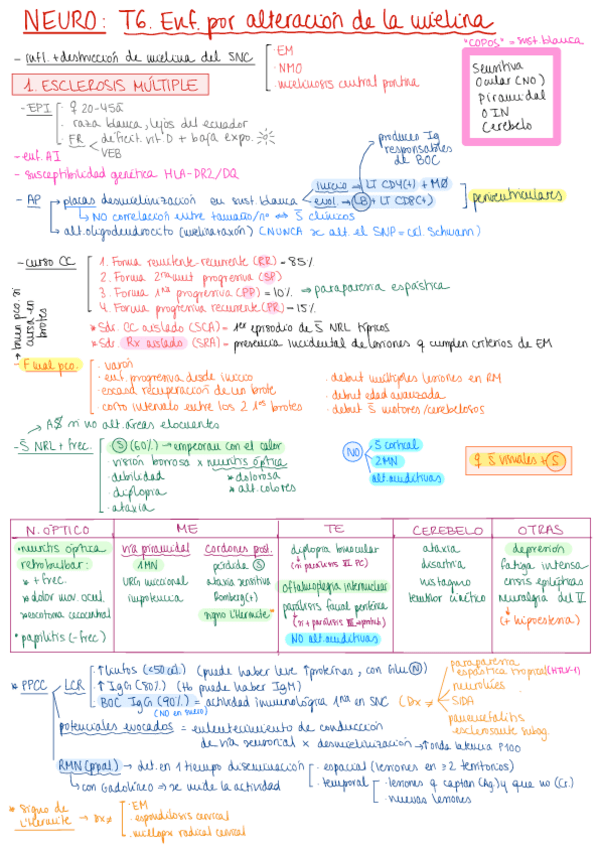 NEURO: T6. Enf. por alteración de la mielina
"COPOS" = sust. blanca
Sensitiva
Ocular (NO)
Piramidal
OIN
Cerebelo
- infl. + destrucción de mielina del SNC
· EM
· NMO
· mielinosis central pontina
1. ESCLEROSIS MÚLTIPLE
- EPI
· ♀ 20-45a
· raza blanca, lejos del ecuador
· FR
déficit vit D + baja expo.
VEB
- enf. AI
- susceptibilidad genética HLA-DR2/DQ
producen Ig
responsables
de BOC
- AP
placas desmielinización en sust. blanca
inicio → LT CD4(+) + MØ
evol. → LB + LT CD8(+)
periventriculares
↳ NO correlación entre tamaño/nº ↔ S̄ clínicos
alt. oligodendrocito (mielina+axón) (NUNCA se alt. el SNP = cél. Schwann)
- curso CC
1. Forma remitente-recurrente (RR) - 85%
2. Forma 2ria progresiva (SP)
3. Forma 1ria progresiva (PP) = 10% ⇒ paraparesia espástica
4. Forma progresiva recurrente (PR) - 15%
* Sdr. CC aislado (SCA) = 1er episodio de S̄ NRL típicos
* Sdr. Rx aislado (SRA) = presencia incidental de lesiones q cumplen criterios de EM
buen pco. si
cursa en
brotes
- F mal pco.
· varón
· enf. progresiva desde inicio
· escasa recuperación de un brote
· corto intervalo entre los 2 1os brotes
· debut múltiples lesiones en RM
· debut edad avanzada
· debut S̄ motores/cerebelosos
AS si no alt. áreas elocuentes
- S̄ NRL + frec.
· S (60%) → empeoran con el calor
visión borrosa x neuritis óptica
· debilidad
* dolorosa
· diplopia
* alt. colores
· ataxia
NO
S cortical
2MN
alt. auditivas
♀ S̄ visuales + S
N. ÓPTICO
ME
TE
CEREBELO
OTRAS
· neuritis óptica
retrobulbar:
* + frec.
* dolor mov. ocul.
* escotoma cecocentral
* papilitis (- frec)
vía piramidal
1MN
URG miccional
impotencia
Cordones post.
pérdida S
ataxia sensitiva
Romberg (+)
signo L'Hermite*
diplopia binocular
(si parálisis VI PC)
oftalmoplejia internuclear
parálisis facial periférica
NO alt. auditivas
ataxia
disartria
nistagmo
temblor cinético
depresión
fatiga intensa
crisis epilépticas
neuralgia del V
(+ hipoestesia)
* PPCC
LCR
· ↑ linfos (<50 cél.) (puede haber leve ↑ proteínas, con Glu N)
· ↑ IgG (80%) (tb puede haber IgM)
BOC IgG (90%) = actividad inmunológica 1ria en SNC (Dx ≠
(NO en suero)
paraparesia
espástica tropical (HTLV-1)
neurolúes
SIDA
panencefalitis
esclerosante subag.
potenciales evocados = enlentecimiento de conducción
de vía sensorial x desmielinización → ↑ onda latencia P100
RMN (ppal) → det. en 1 tiempo diseminación
· espacial (lesiones en ≥2 territorios)
· temporal
· lesiones q captan (Ag) y que no (Cr.)
· nuevas lesiones
↳ con Gadolineo ⇒ se mide la actividad
* Signo de
L'Hermite → Dx ≠
· EM
· espondilosis cervical
· mielopx radical cervical